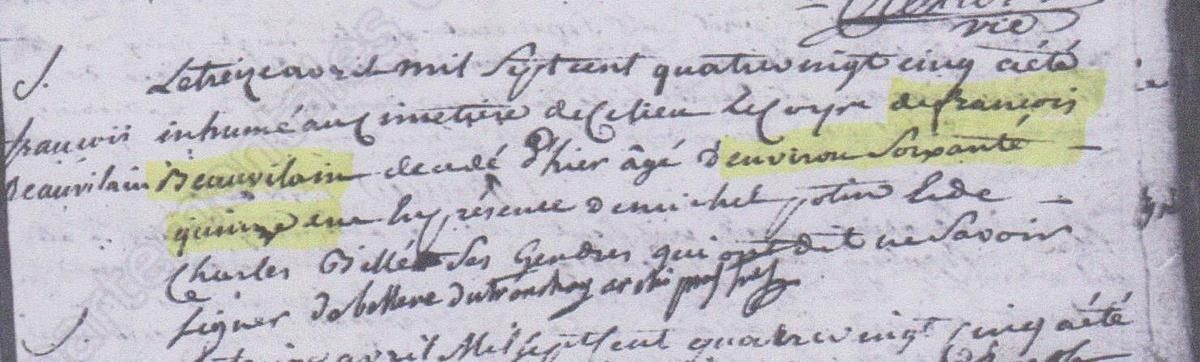 vie
S. Le treize avril mil sept cent quatre vingt cinq a été
françois inhumé au cimetière de ce lieu le corps de françois
Beauvilain Beauvilain decedé d'hier âgé d'environ soixante
quinze en la présence de michel potin
Charles Billé ses Gendres qui ont dit ne savoir
signer
S. avril Mil sept Cent quatre vingt Cinq a été